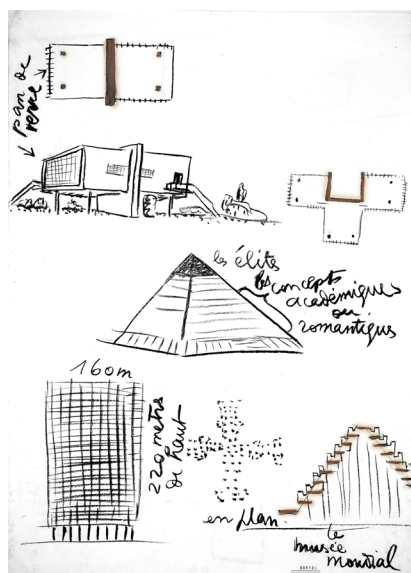 pan de
verre
les élites
les concepts
académiques
ou
romantiques
160m
220 metres
de haut
en plan.
le
musée
mondial